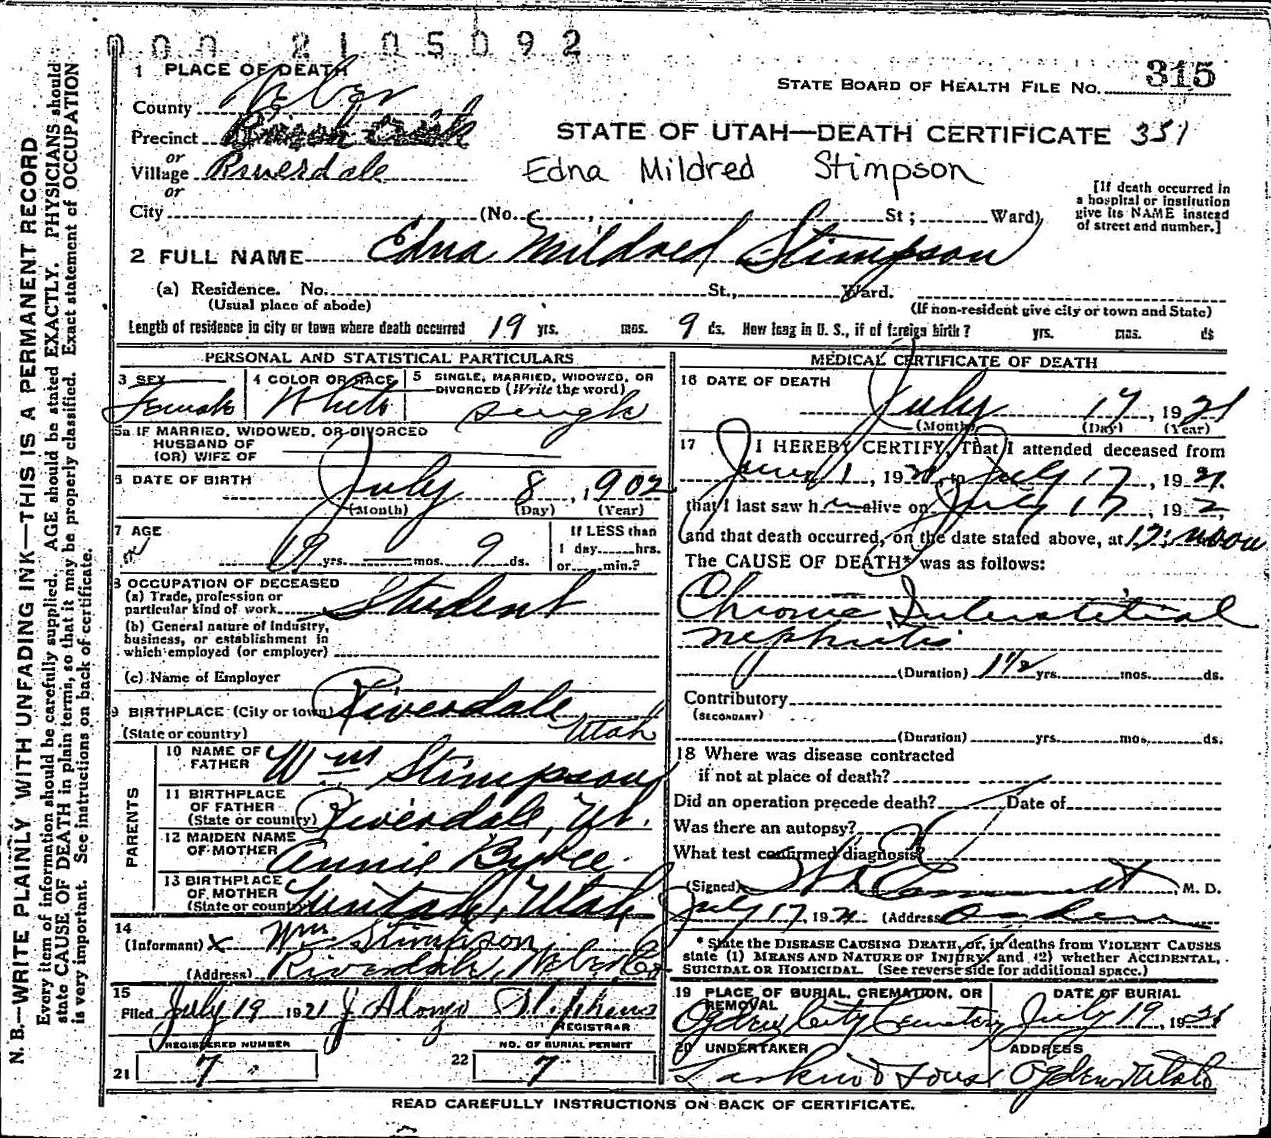 000 2105092
1 PLACE OF DEATH
STATE BOARD OF HEALTH FILE No. 315
County Weber
Precinct
STATE OF UTAH—DEATH CERTIFICATE 351
or
Village Riverdale
Edna Mildred Stimpson
or
[If death occurred in a hospital or institution give its NAME instead of street and number.]
City (No. , St; Ward)
2 FULL NAME Edna Mildred Stimpson
(a) Residence. No. St., Ward.
(Usual place of abode) (If non-resident give city or town and State)
Length of residence in city or town where death occurred 19 yrs. mos. 9 ds. How long in U. S., if of foreign birth? yrs. mos. ds
PERSONAL AND STATISTICAL PARTICULARS
3 SEX Female
4 COLOR OR RACE White
5 SINGLE, MARRIED, WIDOWED, OR DIVORCED (Write the word) Single
5a IF MARRIED, WIDOWED, OR DIVORCED
HUSBAND OF
(OR) WIFE OF
6 DATE OF BIRTH July 8, 1902
(Month) (Day) (Year)
7 AGE 19 yrs. mos. 9 ds.
If LESS than
1 day hrs.
or min.?
8 OCCUPATION OF DECEASED
(a) Trade, profession or particular kind of work Student
(b) General nature of industry, business, or establishment in which employed (or employer)
(c) Name of Employer
9 BIRTHPLACE (City or town) Riverdale
(State or country) Utah
PARENTS
10 NAME OF FATHER Wm Stimpson
11 BIRTHPLACE OF FATHER (State or country) Riverdale, Ut.
12 MAIDEN NAME OF MOTHER Annie Bybee
13 BIRTHPLACE OF MOTHER (State or country) Uintah, Utah
14 (Informant) x Wm Stimpson
(Address) Riverdale, Weber Co
15 Filed July 19 1921 J Alonzo Stephens
REGISTRAR
REGISTERED NUMBER NO. OF BURIAL PERMIT
21 7 22 7
MEDICAL CERTIFICATE OF DEATH
16 DATE OF DEATH
July 17, 1921
(Month) (Day) (Year)
17 I HEREBY CERTIFY, That I attended deceased from
June 1, 1921, to July 17, 1921
that I last saw h alive on July 17, 192
and that death occurred, on the date stated above, at 12: noon
The CAUSE OF DEATH* was as follows:
Chronic Interstitial
nephritis
(Duration) 1 1/2 yrs. mos. ds.
Contributory
(SECONDARY)
(Duration) yrs. mos. ds.
18 Where was disease contracted
if not at place of death?
Did an operation precede death? Date of
Was there an autopsy?
What test confirmed diagnosis?
(Signed) M. D.
July 17, 1921 (Address) Ogden
* State the DISEASE CAUSING DEATH, or, in deaths from VIOLENT CAUSES
state (1) MEANS AND NATURE OF INJURY; and (2) whether ACCIDENTAL,
SUICIDAL OR HOMICIDAL. (See reverse side for additional space.)
19 PLACE OF BURIAL, CREMATION, OR REMOVAL DATE OF BURIAL
Ogden City Cemetery July 19, 1921
20 UNDERTAKER ADDRESS
Larkin & Sons Ogden Utah
READ CAREFULLY INSTRUCTIONS ON BACK OF CERTIFICATE.
N. B.—WRITE PLAINLY WITH UNFADING INK—THIS IS A PERMANENT RECORD
Every item of information should be carefully supplied. AGE should be stated EXACTLY. PHYSICIANS should
state CAUSE OF DEATH in plain terms, so that it may be properly classified. Exact statement of OCCUPATION
is very important. See instructions on back of certificate.